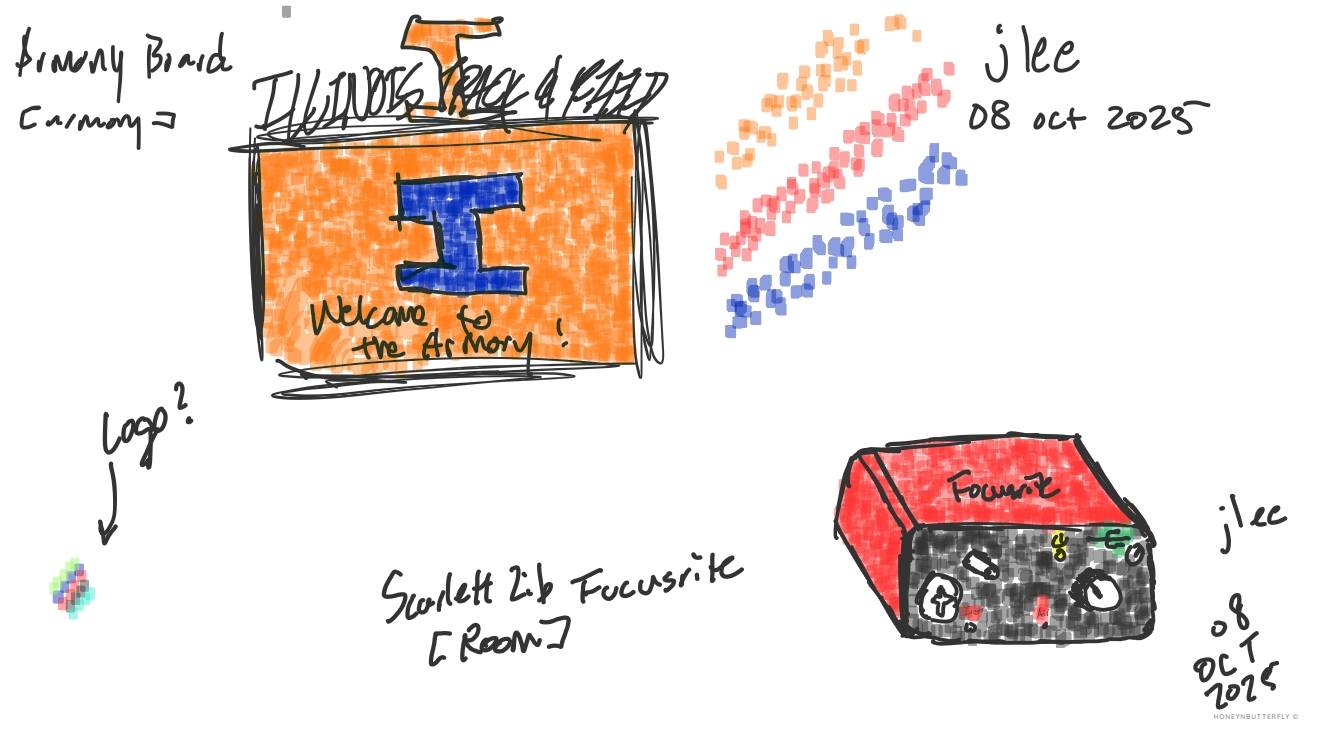 Armory Board
[armory]
ILLINOIS TRACK & FIELD
Welcome to
the Armory!
jlee
08 oct 2025
Logo?
Scarlett 2ib Focusrite
[Room]
Focusrite
jlee
08
OCT
2025
HONEYNBUTTERFLY ©